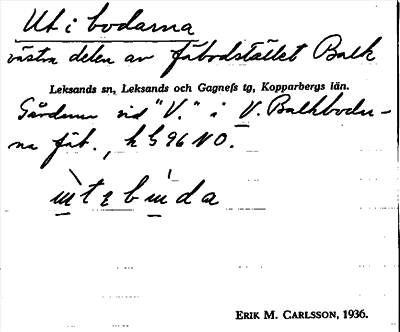 Ut i bodarna
västra delen av fäbodstället Balk
Leksands sn, Leksands och Gagnefs tg, Kopparbergs län.
Gårdarna vid "V." i V. Balkbodar-
na fäb., k G 96 NO.
ERIK M. CARLSSON, 1936.